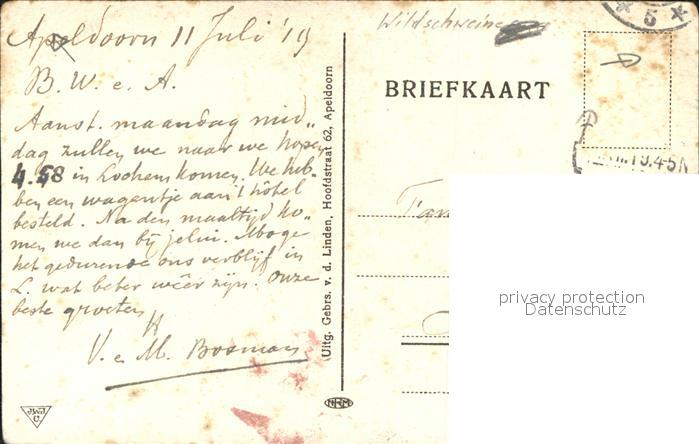 Apeldoorn 11 Juli '19
B. W. e. A.
Aanst. maandag mid„
dag zullen we naar we hopen
4.58 in Lochem komen. We heb„
ben een wagentje aan 't hôtel
besteld. Na den maaltijd ko„
men we dan bij jelui. Moge
het gedurende ons verblijf in
L. wat beter wéér zijn. Onze
beste groeten
V. e M. Bosman
(Uitg. Gebrs. v. d. Linden, Hoofdstraat 62, Apeldoorn
Wildschweine
BRIEFKAART
5
Fam
privacy protection
Datenschutz